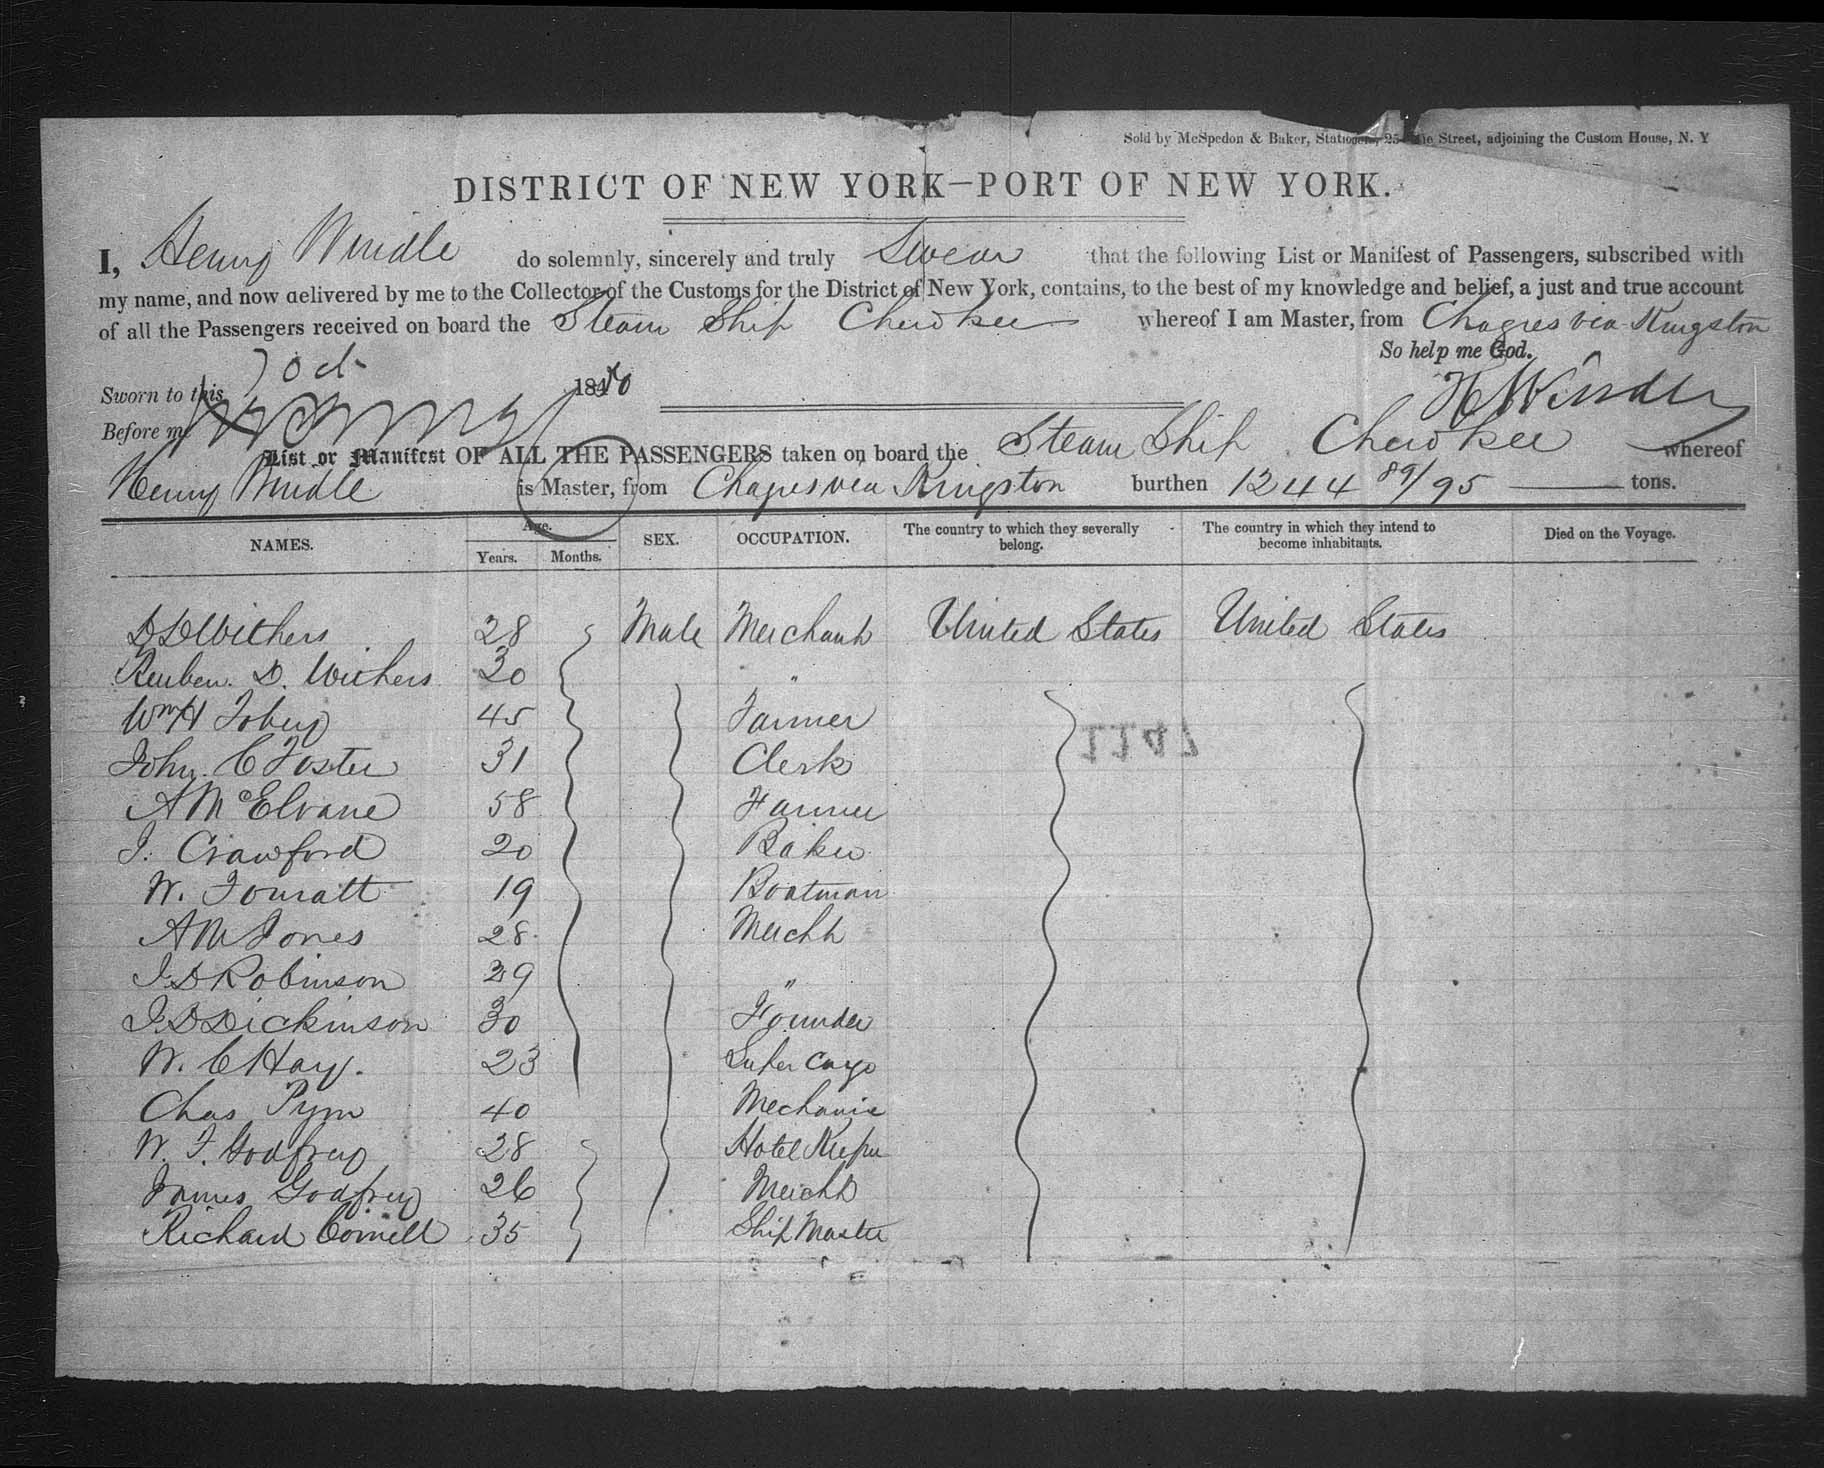 Sold by McSpedon & Baker, Stationers, 25 Pine Street, adjoining the Custom House, N. Y
DISTRICT OF NEW YORK—PORT OF NEW YORK.
I, Henry Windle do solemnly, sincerely and truly Swear that the following List or Manifest of Passengers, subscribed with
my name, and now delivered by me to the Collector of the Customs for the District of New York, contains, to the best of my knowledge and belief, a just and true account
of all the Passengers received on board the Steam Ship Cherokee whereof I am Master, from Chagres via Kingston
So help me God.
Sworn to this 7 Oct 1850
H Windle
Before me
List or Manifest OF ALL THE PASSENGERS taken on board the Steam Ship Cherokee whereof
Henry Windle is Master, from Chagres via Kingston burthen 1244 89/95 tons.
NAMES. Age. Years. Months. SEX. OCCUPATION. The country to which they severally belong. The country in which they intend to become inhabitants. Died on the Voyage.
D D Withers 28 Male Merchant United States United States
Reuben. D. Withers 30 "
Wm H Tobey 45 Farmer
1147
John. C Foster 31 Clerk
A McElvane 58 Farmer
J. Crawford 20 Baker
W. 19 Boatman
A M Jones 28 Mercht
J. D Robinson 29 "
J. D Dickinson 30 Founder
W. C Hay. 23 Super Cargo
Chas Pym 40 Mechanic
W. F. Godfrey 28 Hotel Keeper
James Godfrey 26 Mercht
Richard Cornell 35 Ship Master